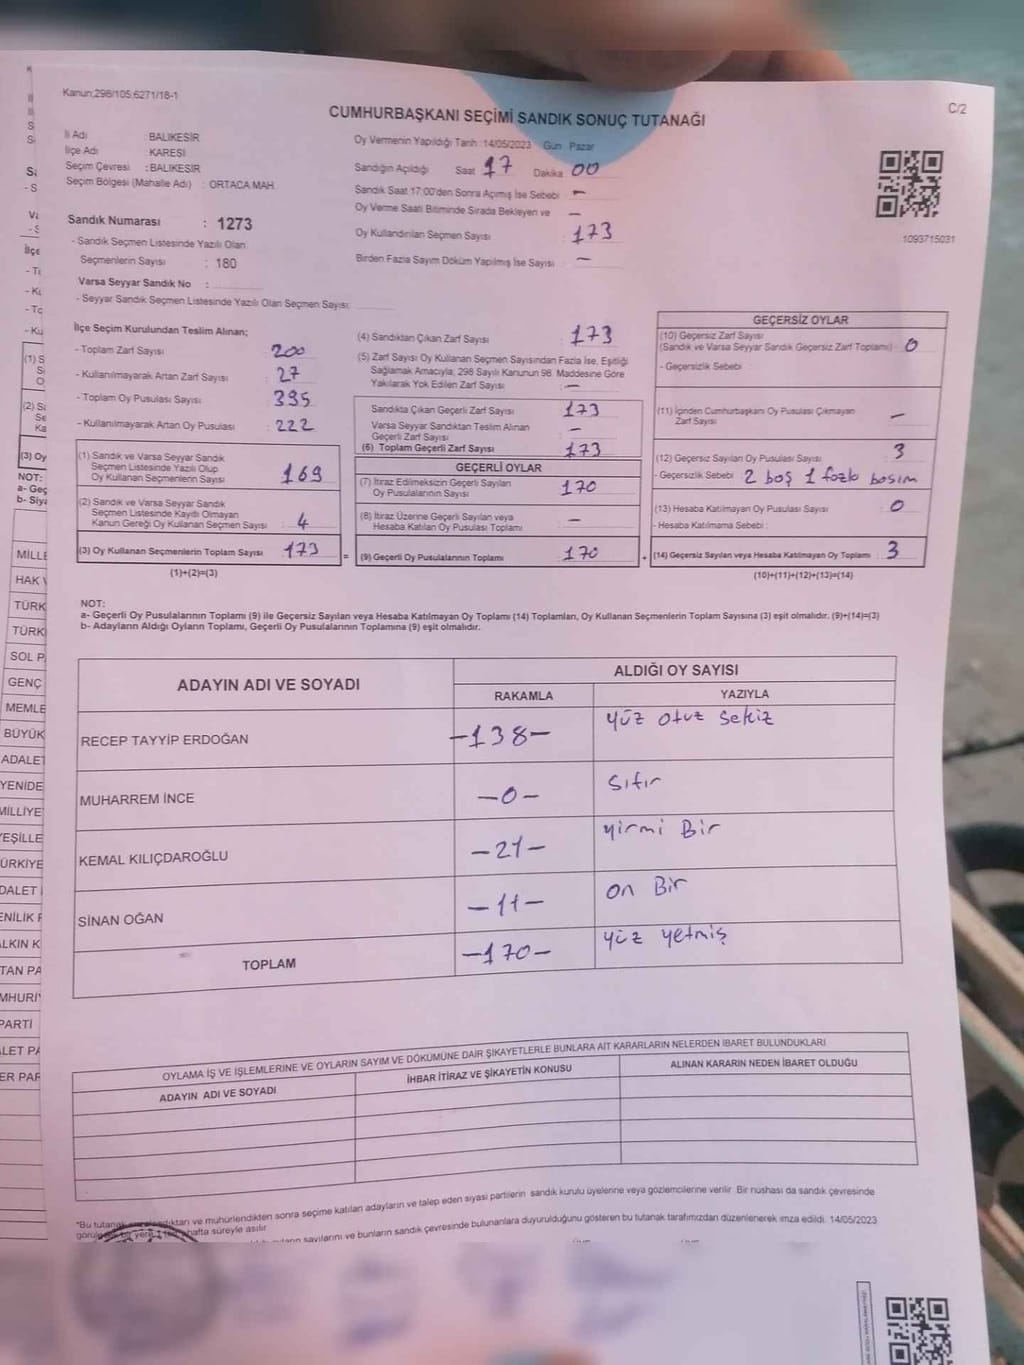 Kanun;298/105;6271/18-1
C/2
CUMHURBAŞKANI SEÇİMİ SANDIK SONUÇ TUTANAĞI
İl Adı BALIKESİR
İlçe Adı KARESİ
Seçim Çevresi : BALIKESİR
Seçim Bölgesi (Mahalle Adı) : ORTACA MAH.
Sandık Numarası : 1273
- Sandık Seçmen Listesinde Yazılı Olan
Seçmenlerin Sayısı : 180
Varsa Seyyar Sandık No :
- Seyyar Sandık Seçmen Listesinde Yazılı Olan Seçmen Sayısı:
Oy Vermenin Yapıldığı Tarih :14/05/2023 Gün Pazar
Sandığın Açıldığı Saat 17 Dakika 00
Sandık Saat 17:00'den Sonra Açılmış İse Sebebi : -
Oy Verme Saati Bitiminde Sırada Bekleyen ve -
Oy Kullandırılan Seçmen Sayısı : 173
Birden Fazla Sayım Döküm Yapılmış İse Sayısı : -
1093715031
İlçe Seçim Kurulundan Teslim Alınan;
- Toplam Zarf Sayısı : 200
- Kullanılmayarak Artan Zarf Sayısı : 27
- Toplam Oy Pusulası Sayısı : 395
- Kullanılmayarak Artan Oy Pusulası : 222
(1) Sandık ve Varsa Seyyar Sandık
Seçmen Listesinde Yazılı Olup
Oy Kullanan Seçmenlerin Sayısı : 169
(2) Sandık ve Varsa Seyyar Sandık
Seçmen Listesinde Kayıtlı Olmayan
Kanun Gereği Oy Kullanan Seçmen Sayısı : 4
(3) Oy Kullanan Seçmenlerin Toplam Sayısı : 173
(1)+(2)=(3)
=
(4) Sandıktan Çıkan Zarf Sayısı : 173
(5) Zarf Sayısı Oy Kullanan Seçmen Sayısından Fazla İse, Eşitliği
Sağlamak Amacıyla, 298 Sayılı Kanunun 98. Maddesine Göre
Yakılarak Yok Edilen Zarf Sayısı : -
Sandıkta Çıkan Geçerli Zarf Sayısı : 173
Varsa Seyyar Sandıktan Teslim Alınan
Geçerli Zarf Sayısı : -
(6) Toplam Geçerli Zarf Sayısı : 173
GEÇERLİ OYLAR
(7) İtiraz Edilmeksizin Geçerli Sayılan
Oy Pusulalarının Sayısı : 170
(8) İtiraz Üzerine Geçerli Sayılan veya
Hesaba Katılan Oy Pusulası Toplamı : -
(9) Geçerli Oy Pusulalarının Toplamı : 170
+
GEÇERSİZ OYLAR
(10) Geçersiz Zarf Sayısı
(Sandık ve Varsa Seyyar Sandık Geçersiz Zarf Toplamı) : 0
- Geçersizlik Sebebi :
(11) İçinden Cumhurbaşkanı Oy Pusulası Çıkmayan
Zarf Sayısı : -
(12) Geçersiz Sayılan Oy Pusulası Sayısı : 3
- Geçersizlik Sebebi : 2 boş 1 fazla basım
(13) Hesaba Katılmayan Oy Pusulası Sayısı : 0
- Hesaba Katılmama Sebebi :
(14) Geçersiz Sayılan veya Hesaba Katılmayan Oy Toplamı : 3
(10)+(11)+(12)+(13)=(14)
NOT:
a- Geçerli Oy Pusulalarının Toplamı (9) ile Geçersiz Sayılan veya Hesaba Katılmayan Oy Toplamı (14) Toplamları, Oy Kullanan Seçmenlerin Toplam Sayısına (3) eşit olmalıdır. (9)+(14)=(3)
b- Adayların Aldığı Oyların Toplamı, Geçerli Oy Pusulalarının Toplamına (9) eşit olmalıdır.
ADAYIN ADI VE SOYADI ALDIĞI OY SAYISI
RAKAMLA YAZIYLA
RECEP TAYYİP ERDOĞAN -138- yüz otuz sekiz
MUHARREM İNCE -0- Sıfır
KEMAL KILIÇDAROĞLU -21- yirmi Bir
SİNAN OĞAN -11- on Bir
TOPLAM -170- yüz yetmiş
OYLAMA İŞ VE İŞLEMLERİNE VE OYLARIN SAYIM VE DÖKÜMÜNE DAİR ŞİKAYETLERLE BUNLARA AİT KARARLARIN NELERDEN İBARET BULUNDUKLARI
ADAYIN ADI VE SOYADI İHBAR İTİRAZ VE ŞİKAYETİN KONUSU ALINAN KARARIN NEDEN İBARET OLDUĞU
*Bu tutanak ve mühürlendikten sonra seçime katılan adayların ve talep eden siyasi partilerin sandık kurulu üyelerine veya gözlemcilerine verilir. Bir nüshası da sandık çevresinde
hafta süreyle asılır.
sayılarını ve bunların sandık çevresinde bulunanlara duyurulduğunu gösteren bu tutanak tarafımızdan düzenlenerek imza edildi. 14/05/2023